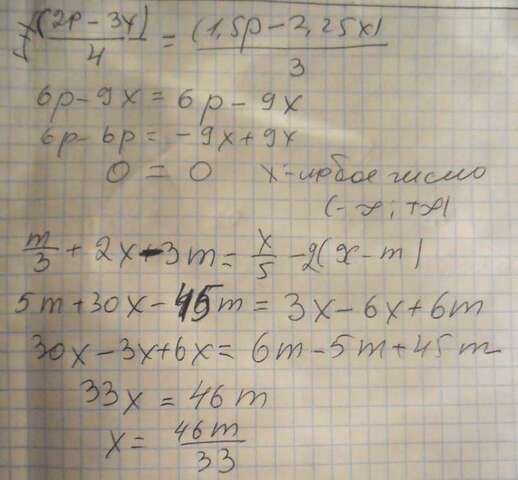 (2p-3x)/4 = (1,5p-2,25x)/3
6p-9x = 6p-9x
6p-6p = -9x+9x
0 = 0 x-любое число
(-∞; +∞)
m/3 + 2x-3m = x/5 -2(x-m)
5m+30x-45m = 3x-6x+6m
30x-3x+6x = 6m-5m+45m
33x = 46m
x = 46m/33